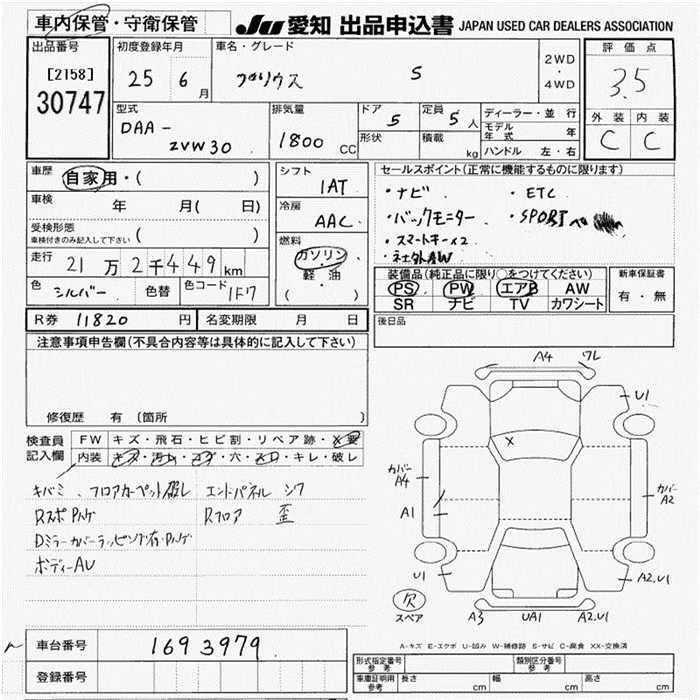 車内保管・守衛保管
JU 愛知 出品申込書 JAPAN USED CAR DEALERS ASSOCIATION
出品番号 初度登録年月 車名・グレード 2WD ・ 4WD 評価点
[2158] 25 6月 プリウス S 3.5
30747 外装 内装
型式 排気量 ドア 5 定員 5人 ディーラー・並行 C C
DAA- 1800cc 形状 積載 kg モデル年式 年
ZVW30 ハンドル 左・右
車歴 自家用・( ) シフト 1AT セールスポイント(正常に機能するものに限ります)
車検 年 月(日) 冷房 AAC ・ナビ ・ETC
受検形態 車検付きのみ記入して下さい ( ) ・バックモニター ・SPORT
走行 21万2千449km 燃料 ガソリン ・スマートキー×2
軽・油 ・社外AW
( )
色 シルバー 色替 色コード 1F7
装備品(純正品に限り○をつけてください) 新車保証書
PS PW エアB AW 有・無
SR ナビ TV カワシート
R券 11820円 名変期限 月 日 後日品
注意事項申告欄(不具合内容等は具体的に記入して下さい)
修復歴 有 〔箇所 〕
検査員記入欄 FW キズ・飛石・ヒビ割・リペア跡・X要
内装 キズ・汚レ・コゲ・穴・スレ・キレ・破レ
キバミ、フロアカーペット破レ エンドパネル シワ
Rスポハゲ Rフロア 歪
Dミラーカバーラッピング有・ハゲ
ボディーAU
A4 ワレ
U1
X
カバー A4
カバー A2
A1
U1
A2.U1
欠
スペア
A3 UA1 A2.U1
A-キズ E-エクボ U-凹み W-補修跡 S-サビ C-腐食 XX-交換済
車台番号 1693979
登録番号
形式指定番号 参考 類別区分番号 参考
車庫証明用 参考 長さ cm 幅 cm 高さ cm